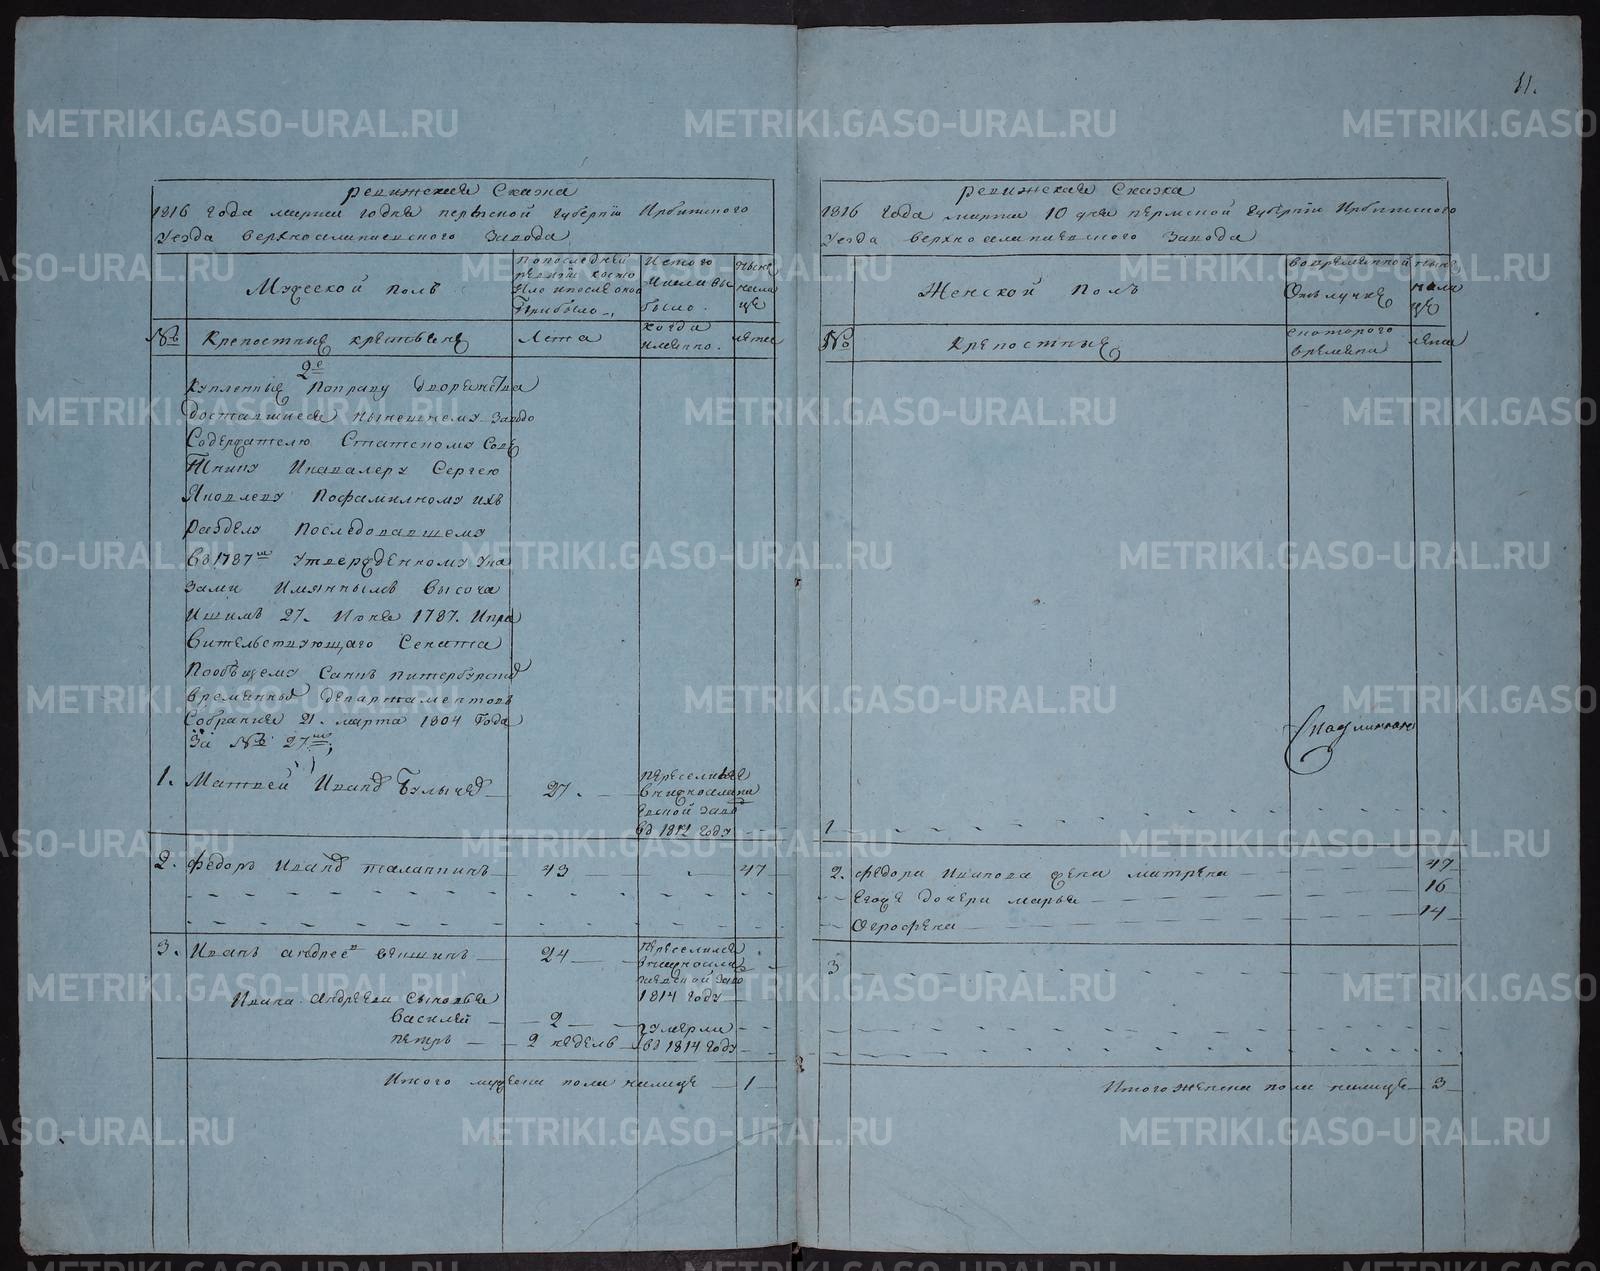 11.
Ревижская Сказка
1816 года марта 10 дня пермской губернїи Ирбитского
Уезда верхнесинячихинского Завода
Мужеской полъ
попоследней
ревизїи состо
яло ипосле оной
Прибыло
Изтого
числа вы
было
ныне
нали
це
№
Крепостные крестьяне
Лета
когда
имянно.
лета
2е
Купленные Поправу дворянства
доставшиеся Нынешнему Заводо
Содержателю Статскому Сове
тнику Икавалеру Сергею
Яковлеву Пофамилному ихъ
разделу последовавшему
въ 1787м утвержденному Ука
зами Имяннымъ высоча
ишимъ 27. Июня 1787. Ипра
вительствующаго Сената
Пообщему Санкъ питербурски
временныхъ департаментовъ
Собрания 21. марта 1804 года
За № 27м
1. Матвей Иванов Булычев 27.
переселився
в
ской заво
въ 1812 году
2. Федоръ Иванов таланкинъ 43 47
3. Иванъ андреев вяшинъ 24
переселился
заво
1814 году
Ивана Андреева сыновья
василей 2
петръ 2 недель
умерли
въ 1814 году
Итого мужеска пола налице 1
Ревижская Сказка
1816 года марта 10 дня пермской губернїи Ирбитского
Уезда верхнесинячихинского Завода
Женской полъ
вовременной
Отлучке
ныне
нали
це
№
Крепостные
скоторого
времяни
лета
1
2. Федора Иванова жена матрена 47
Егоже дочери марья 16
Огрофена 14
3
Итого женска пола налице 3